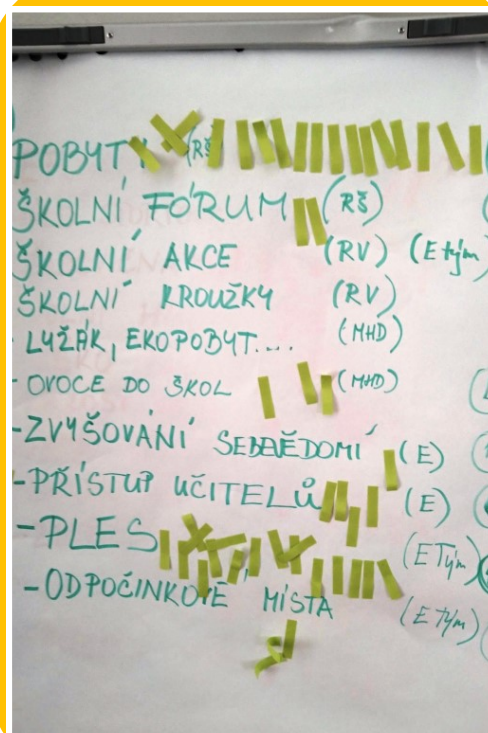 POBYTY (RŠ)
ŠKOLNÍ FÓRUM (RŠ)
ŠKOLNÍ AKCE (RV) (E tým)
ŠKOLNÍ KROUŽKY (RV)
- LYŽÁK, EKOPOBYT.... (MHD)
- OVOCE DO ŠKOL (MHD)
- ZVYŠOVÁNÍ SEBEVĚDOMÍ (E)
- PŘÍSTUP UČITELŮ (E)
- PLES (E Tým)
- ODPOČINKOVÉ MÍSTA (E Tým)